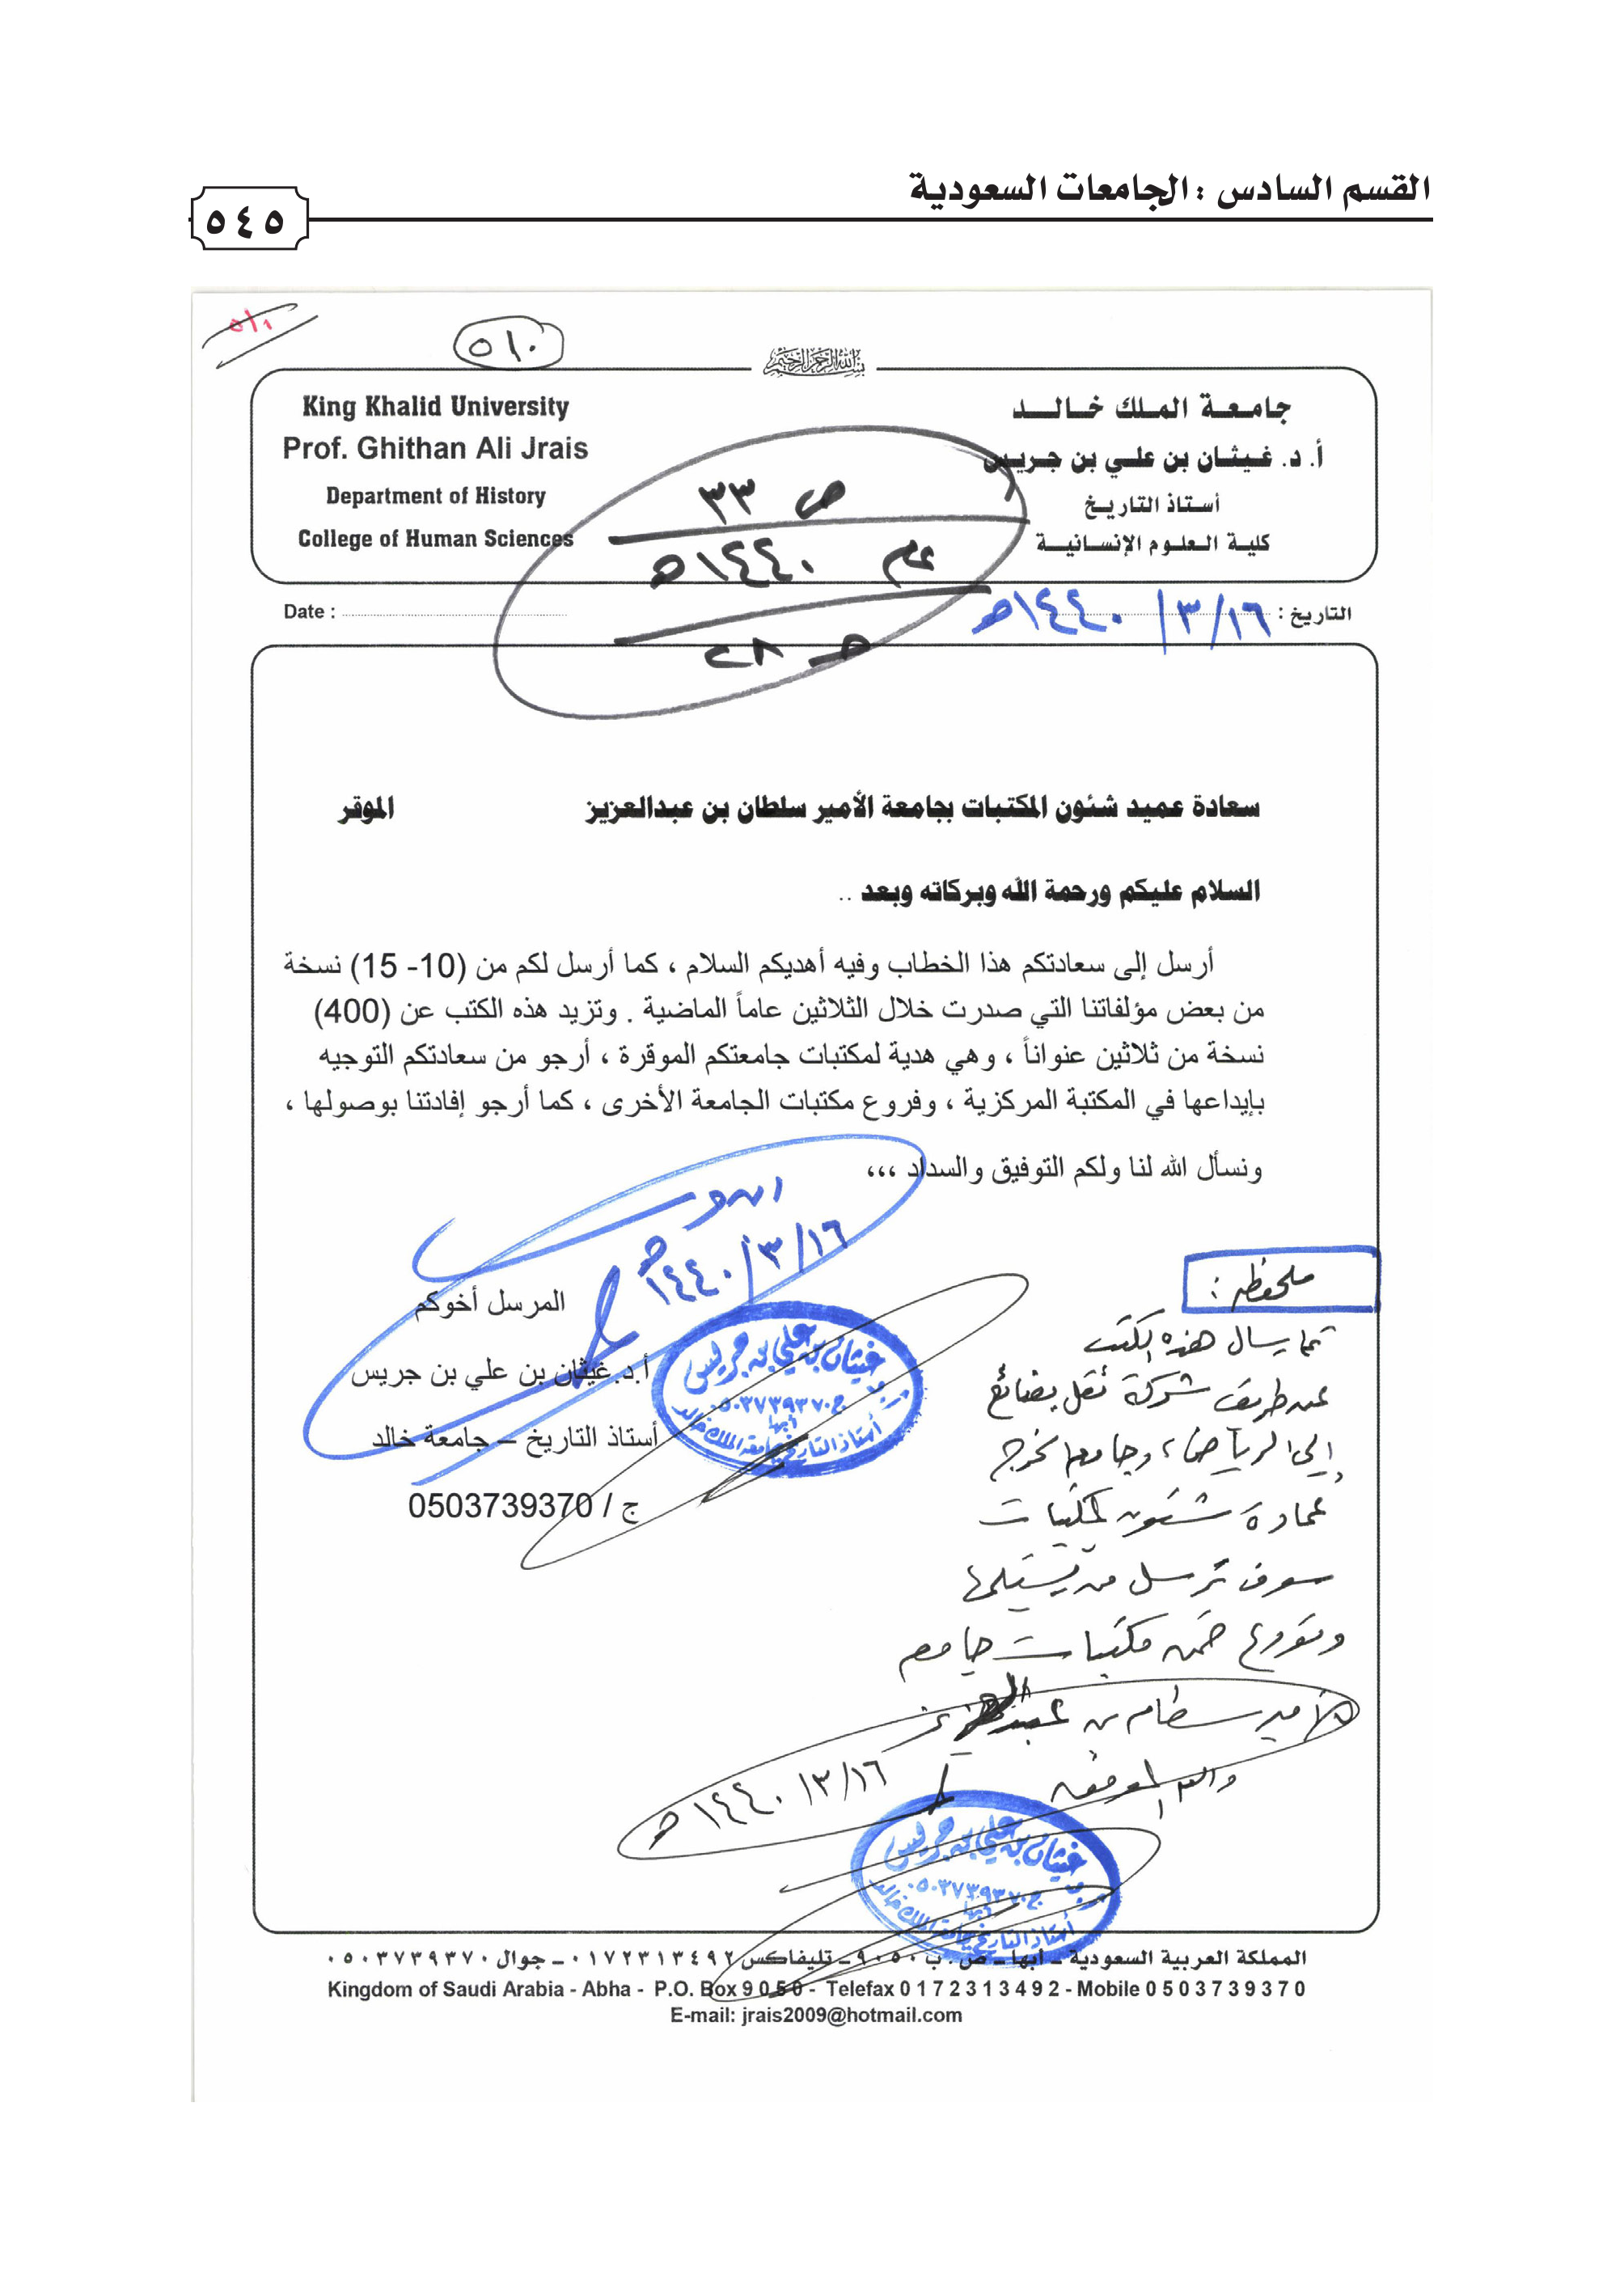 القسم السادس : الجامعات السعودية
٥٤٥
٥١٠
بسم الله الرحمن الرحيم
جامعة الملك خالد
أ. د. غيثان بن علي بن جريس
أستاذ التاريخ
كلية العلوم الإنسانية
King Khalid University
Prof. Ghithan Ali Jrais
Department of History
College of Human Sciences
ص ٣٣
عام ١٤٤٠هـ
التاريخ : ١٦/٣/١٤٤٠هـ
Date :
سعادة عميد شئون المكتبات بجامعة الأمير سلطان بن عبدالعزيز الموقر
السلام عليكم ورحمة الله وبركاته وبعد ..
أرسل إلى سعادتكم هذا الخطاب وفيه أهديكم السلام ، كما أرسل لكم من (10- 15) نسخة
من بعض مؤلفاتنا التي صدرت خلال الثلاثين عاماً الماضية . وتزيد هذه الكتب عن (400)
نسخة من ثلاثين عنواناً ، وهي هدية لمكتبات جامعتكم الموقرة ، أرجو من سعادتكم التوجيه
بإيداعها في المكتبة المركزية ، وفروع مكتبات الجامعة الأخرى ، كما أرجو إفادتنا بوصولها ،
ونسأل الله لنا ولكم التوفيق والسداد ،،،
١٦/٣/١٤٤٠هـ
المرسل أخوكم
أ.د.غيثان بن علي بن جريس
أستاذ التاريخ – جامعة خالد
ج / 0503739370
غيثان بن علي بن جريس
ج ٠٥٠٣٧٣٩٣٧٠
أبها
أستاذ التاريخ بجامعة الملك خالد
ملحوظة :
تم إرسال هذه الكتب
عن طريق شركة نقل بضائع
إلى الرياض ، وجامعة الخرج
عمادة شئون المكتبات
سوف ترسل من يستلمها
وتوزع ضمن مكتبات جامعة
الأمير سطام بن عبدالعزيز
والله الموفق
١٦/٣/١٤٤٠هـ
غيثان بن علي بن جريس
ج ٠٥٠٣٧٣٩٣٧٠
أبها
أستاذ التاريخ بجامعة الملك خالد
المملكة العربية السعودية - أبها - ص . ب ٩٠٥٠ - تليفاكس ٠١٧٢٣١٣٤٩٢ - جوال ٠٥٠٣٧٣٩٣٧٠
Kingdom of Saudi Arabia - Abha - P.O. Box 9050 - Telefax 0172313492 - Mobile 0503739370
E-mail: jrais2009@hotmail.com